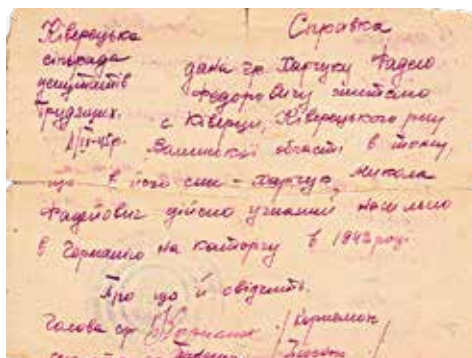 Ківерецька
сільрада
депутатів
трудящих.
Справка
дана гр. Харчуку Фадею
Федоровичу жителю
с. Ківерци, Ківерецького р-ну
Волинської області в тому,
що в його син - Харчук Микола
Фадійович дійсно угнаний насильно
в Германію на каторгу в 1942 році.
Про що й свідчить.
Голова ср